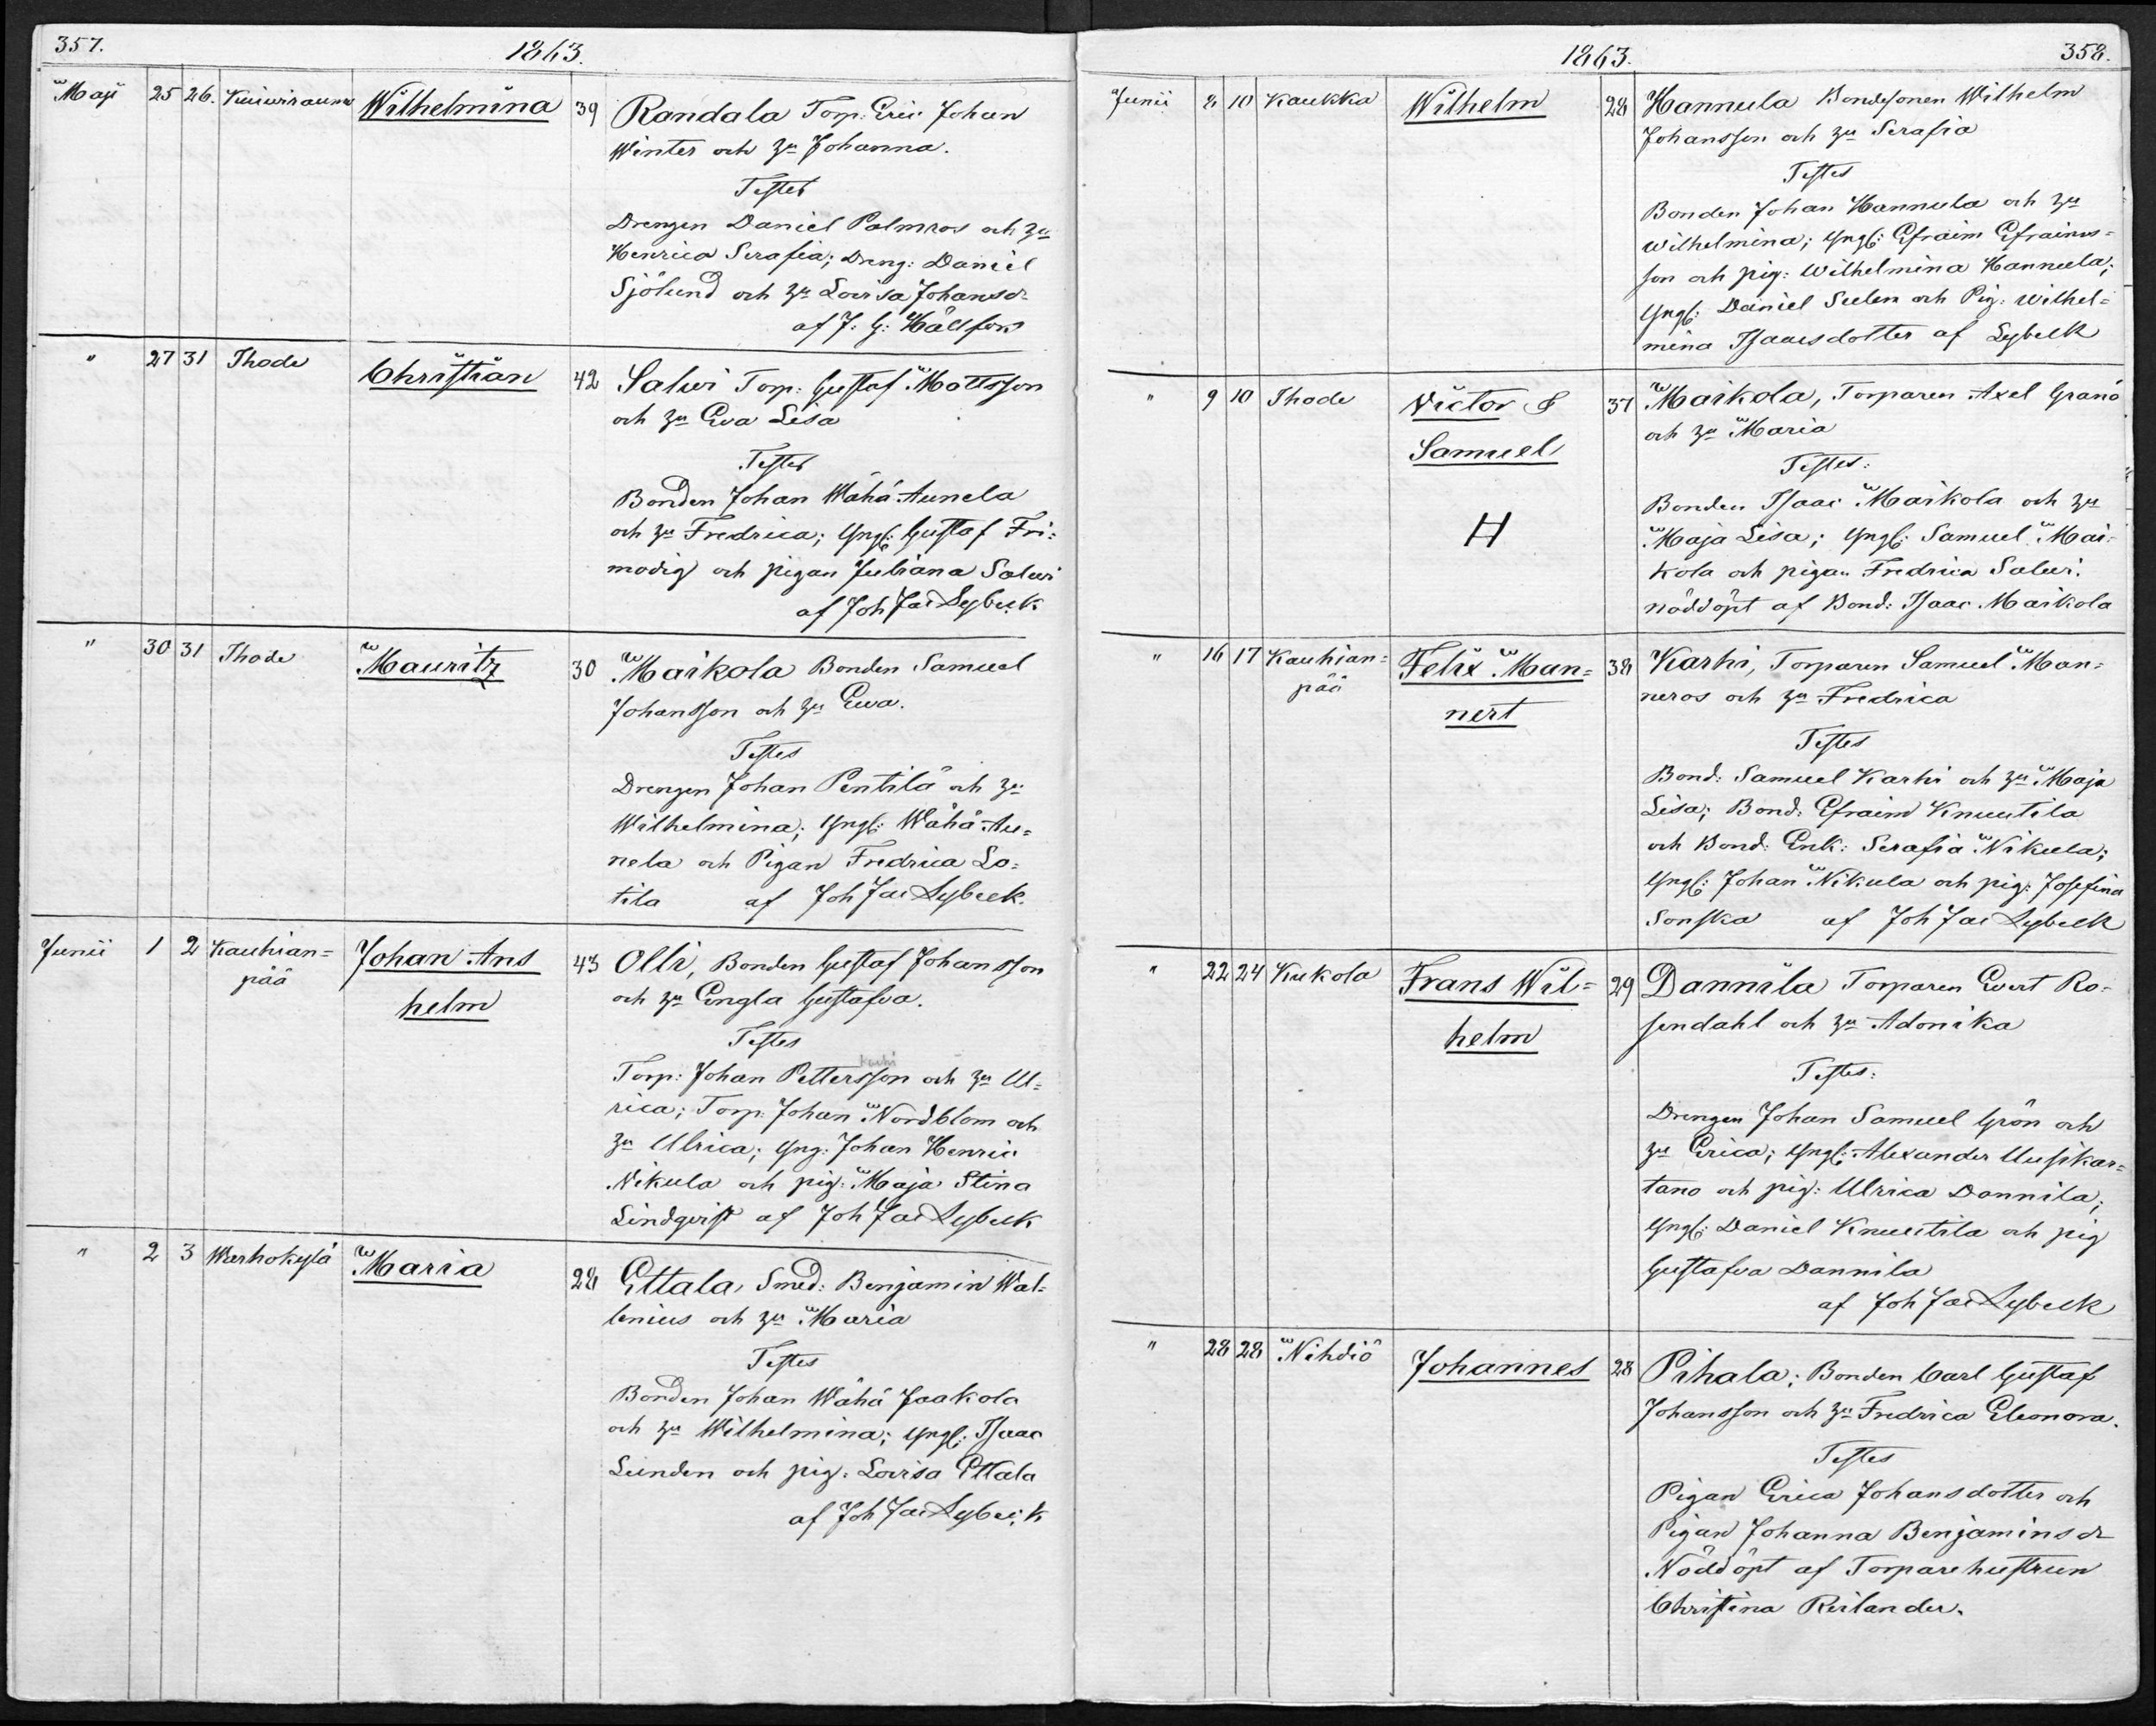 357.
1863.
Maji 25 26. Kuiwirauma Wilhelmina 39 Randala Torp. Eric Johan
Winter och hu Johanna.
Testes
Drengen Daniel Palmros och hu
Henrica Serafia; Dreng: Daniel
Sjölund och hu Lovisa Johansdr
af J. G. Hällfors
" 27 31 Thode Christian 42 Salwi Torp: Gustaf Mattsson
och hu Eva Lisa
Testes
Bonden Johan Wähä Aunela
och hu Fredrica; Yngl: Gustaf Fri=
modig och pigan Juliana Salwi
af Joh Jac Lybeck
" 30 31 Thode Mauritz 30 Maikola Bonden Samuel
Johansson och hu Ewa.
Testes
Drengen Johan Pentilä och hu
Wilhelmina; Yngl: Wähä Au=
nela och Pigan Fredrica Lo=
tila af Joh Jac Lybeck.
Junii 1 2 Kauhian= Johan Ans 43 Olli, Bonden Gustaf Johansson
pää helm och hu Engla Gustafva.
Testes
Karhi
Torp: Johan Pettersson och hu Ul=
rica; Torp: Johan Nordblom och
hu Ulrica; Yng: Johan Henric
Nikula och pig: Maja Stina
Lindqvist af Joh Jac Lybeck
" 2 3 Warhokylä Maria 28 Ettala, Smed: Benjamin Wal=
lenius och hu Maria
Testes
Bonden Johan Wähä Jaakola
och hu Wilhelmina; Yngl: Isaac
Lunden och pig: Lovisa Ettala
af Joh Jac Lybeck
1863. 358.
Junii 8 10 Kaukka Wilhelm 28 Hannula Bondesonen Wilhelm
Johansson och hu Serafia
Testes
Bonden Johan Hannula och hu
Wilhelmina; Yngl: Efraim Efraims=
son och pig: Wilhelmina Hannula;
Yngl: Daniel Sulen och Pig: Wilhel=
mina Isaacsdotter af Lybeck
" 9 10 Thode Victor & 37 Maikola, Torparen Axel Granö
Samuel och hu Maria
Testes:
Bonden Isaac Maikola och hu
H Maja Lisa; Yngl: Samuel Mai=
kola och pigan Fredrica Salwi.
nöddöpt af Bond: Isaac Maikola
" 16 17 Kauhian= Felix Man= 38 Karhi, Torparen Samuel Man=
pää nert neros och hu Fredrica
Testes
Bond: Samuel Karhi och hu Maja
Lisa; Bond: Efraim Knuutila
och Bond: Enk: Serafia Nikula;
Yngl: Johan Nikula och pig: Josefina
Sonska af Joh Jac Lybeck
" 22 24 Kukola Frans Wil= 29 Dannila Torparen Evert Ro=
helm sendahl och hu Adonika
Testes:
Drengen Johan Samuel Grön och
hu Erica; Yngl: Alexander Uusikar=
tano och pig: Ulrica Dannila;
Yngl: Daniel Knuutila och pig
Gustafva Dannila
af Joh Jac Lybeck
" 28 28 Nihdiö Johannes 28 Pihala; Bonden Carl Gustaf
Johansson och hu Fredrica Eleonora.
Testes
Pigan Erica Johansdotter och
Pigan Johanna Benjaminsdr
Nöddöpt af Torparehustrun
Christina Reilander.